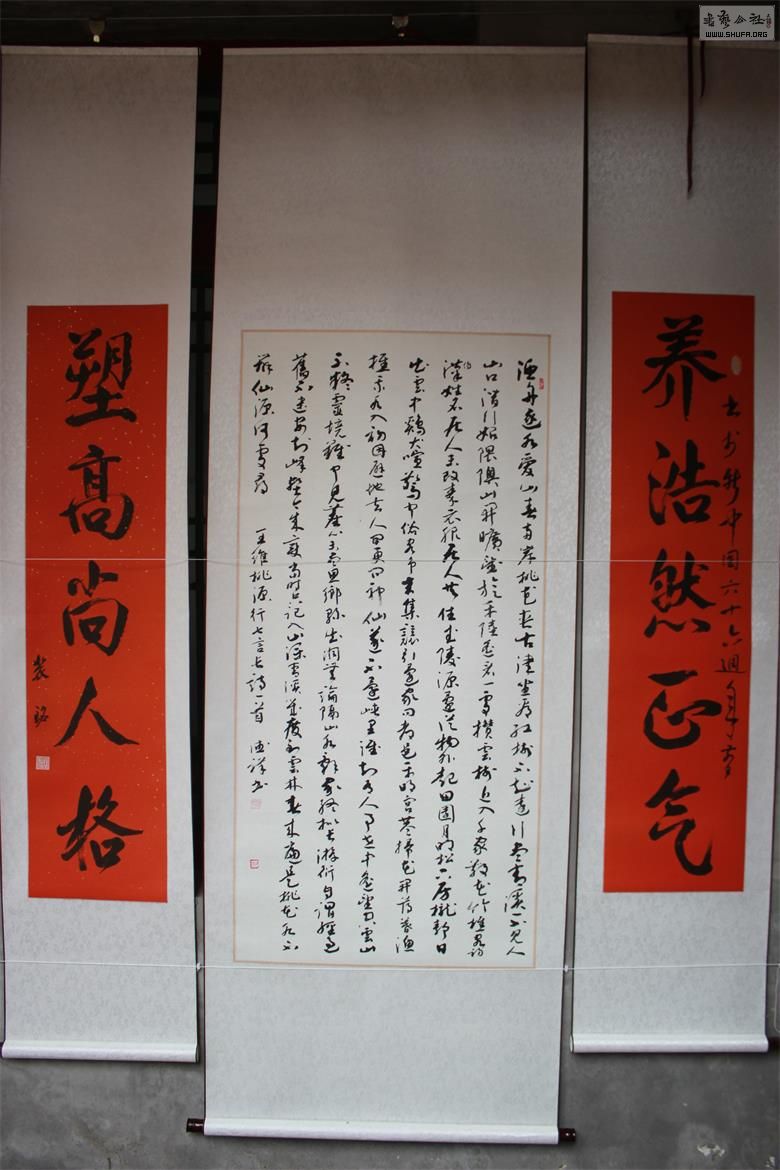 养浩然正气
书于新中国六十六週年
渔舟逐水愛山春两岸桃花夹古津坐看红树不知远行尽青溪不见人
山口潜行始隈隩山開曠望旋平陸遥看一處攒雲树近入千家散花竹樵客初
传漢姓名居人未改秦衣服居人共住武陵源還从物外起田園月明松下房栊静日
出雲中鷄犬喧驚闻俗客争来集競引還家问都邑平明闾巷扫花開薄暮渔
樵乘水入初因避地去人间更问神仙遂不還峡里谁知有人事世中遥望空雲山
不疑靈境難闻見塵心未尽思鄉縣出洞無論隔山水辞家终拟长游衍自謂經过
舊不迷安知峰壑今来变當时只记入山深青溪幾度到雲林春来遍是桃花水不
辨仙源何處尋 王维桃源行七言长詩一首 德祥书
塑高尚人格
书艺公社
WWW.SHUFA.ORG